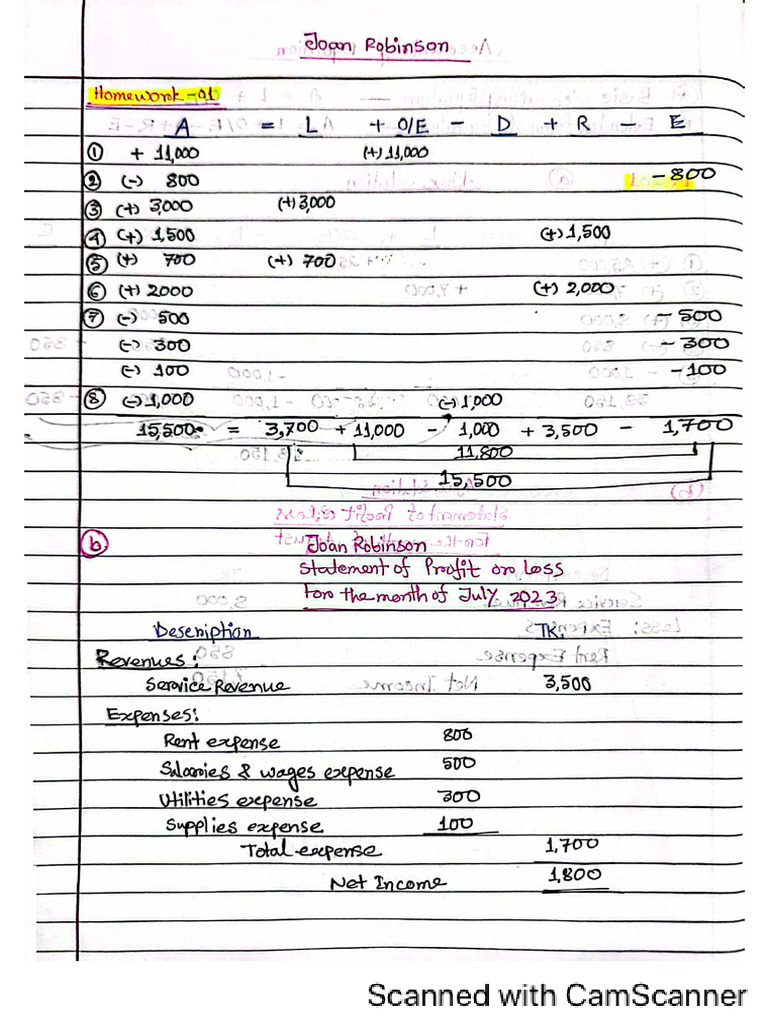 Joan Robinson
Homework-01
A = L + O/E - D + R - E
① + 11,000 (+) 11,000
② (-) 800 - 800
③ (+) 3,000 (+) 3,000
④ (+) 1,500 (+) 1,500
⑤ (+) 700 (+) 700
⑥ (+) 2000 (+) 2,000
⑦ (-) 500 - 500
(-) 300 - 300
(-) 100 - 100
⑧ (-) 1,000 (-) 1,000
15,500 = 3,700 + 11,000 - 1,000 + 3,500 - 1,700
11,800
15,500
ⓑ Joan Robinson
Statement of Profit or Loss
For the month of July 2023
Description TK.
Revenues:
Service Revenue 3,500
Expenses:
Rent expense 800
Salaries & wages expense 500
Utilities expense 300
Supplies expense 100
Total expense 1,700
Net Income 1,800
Scanned with CamScanner